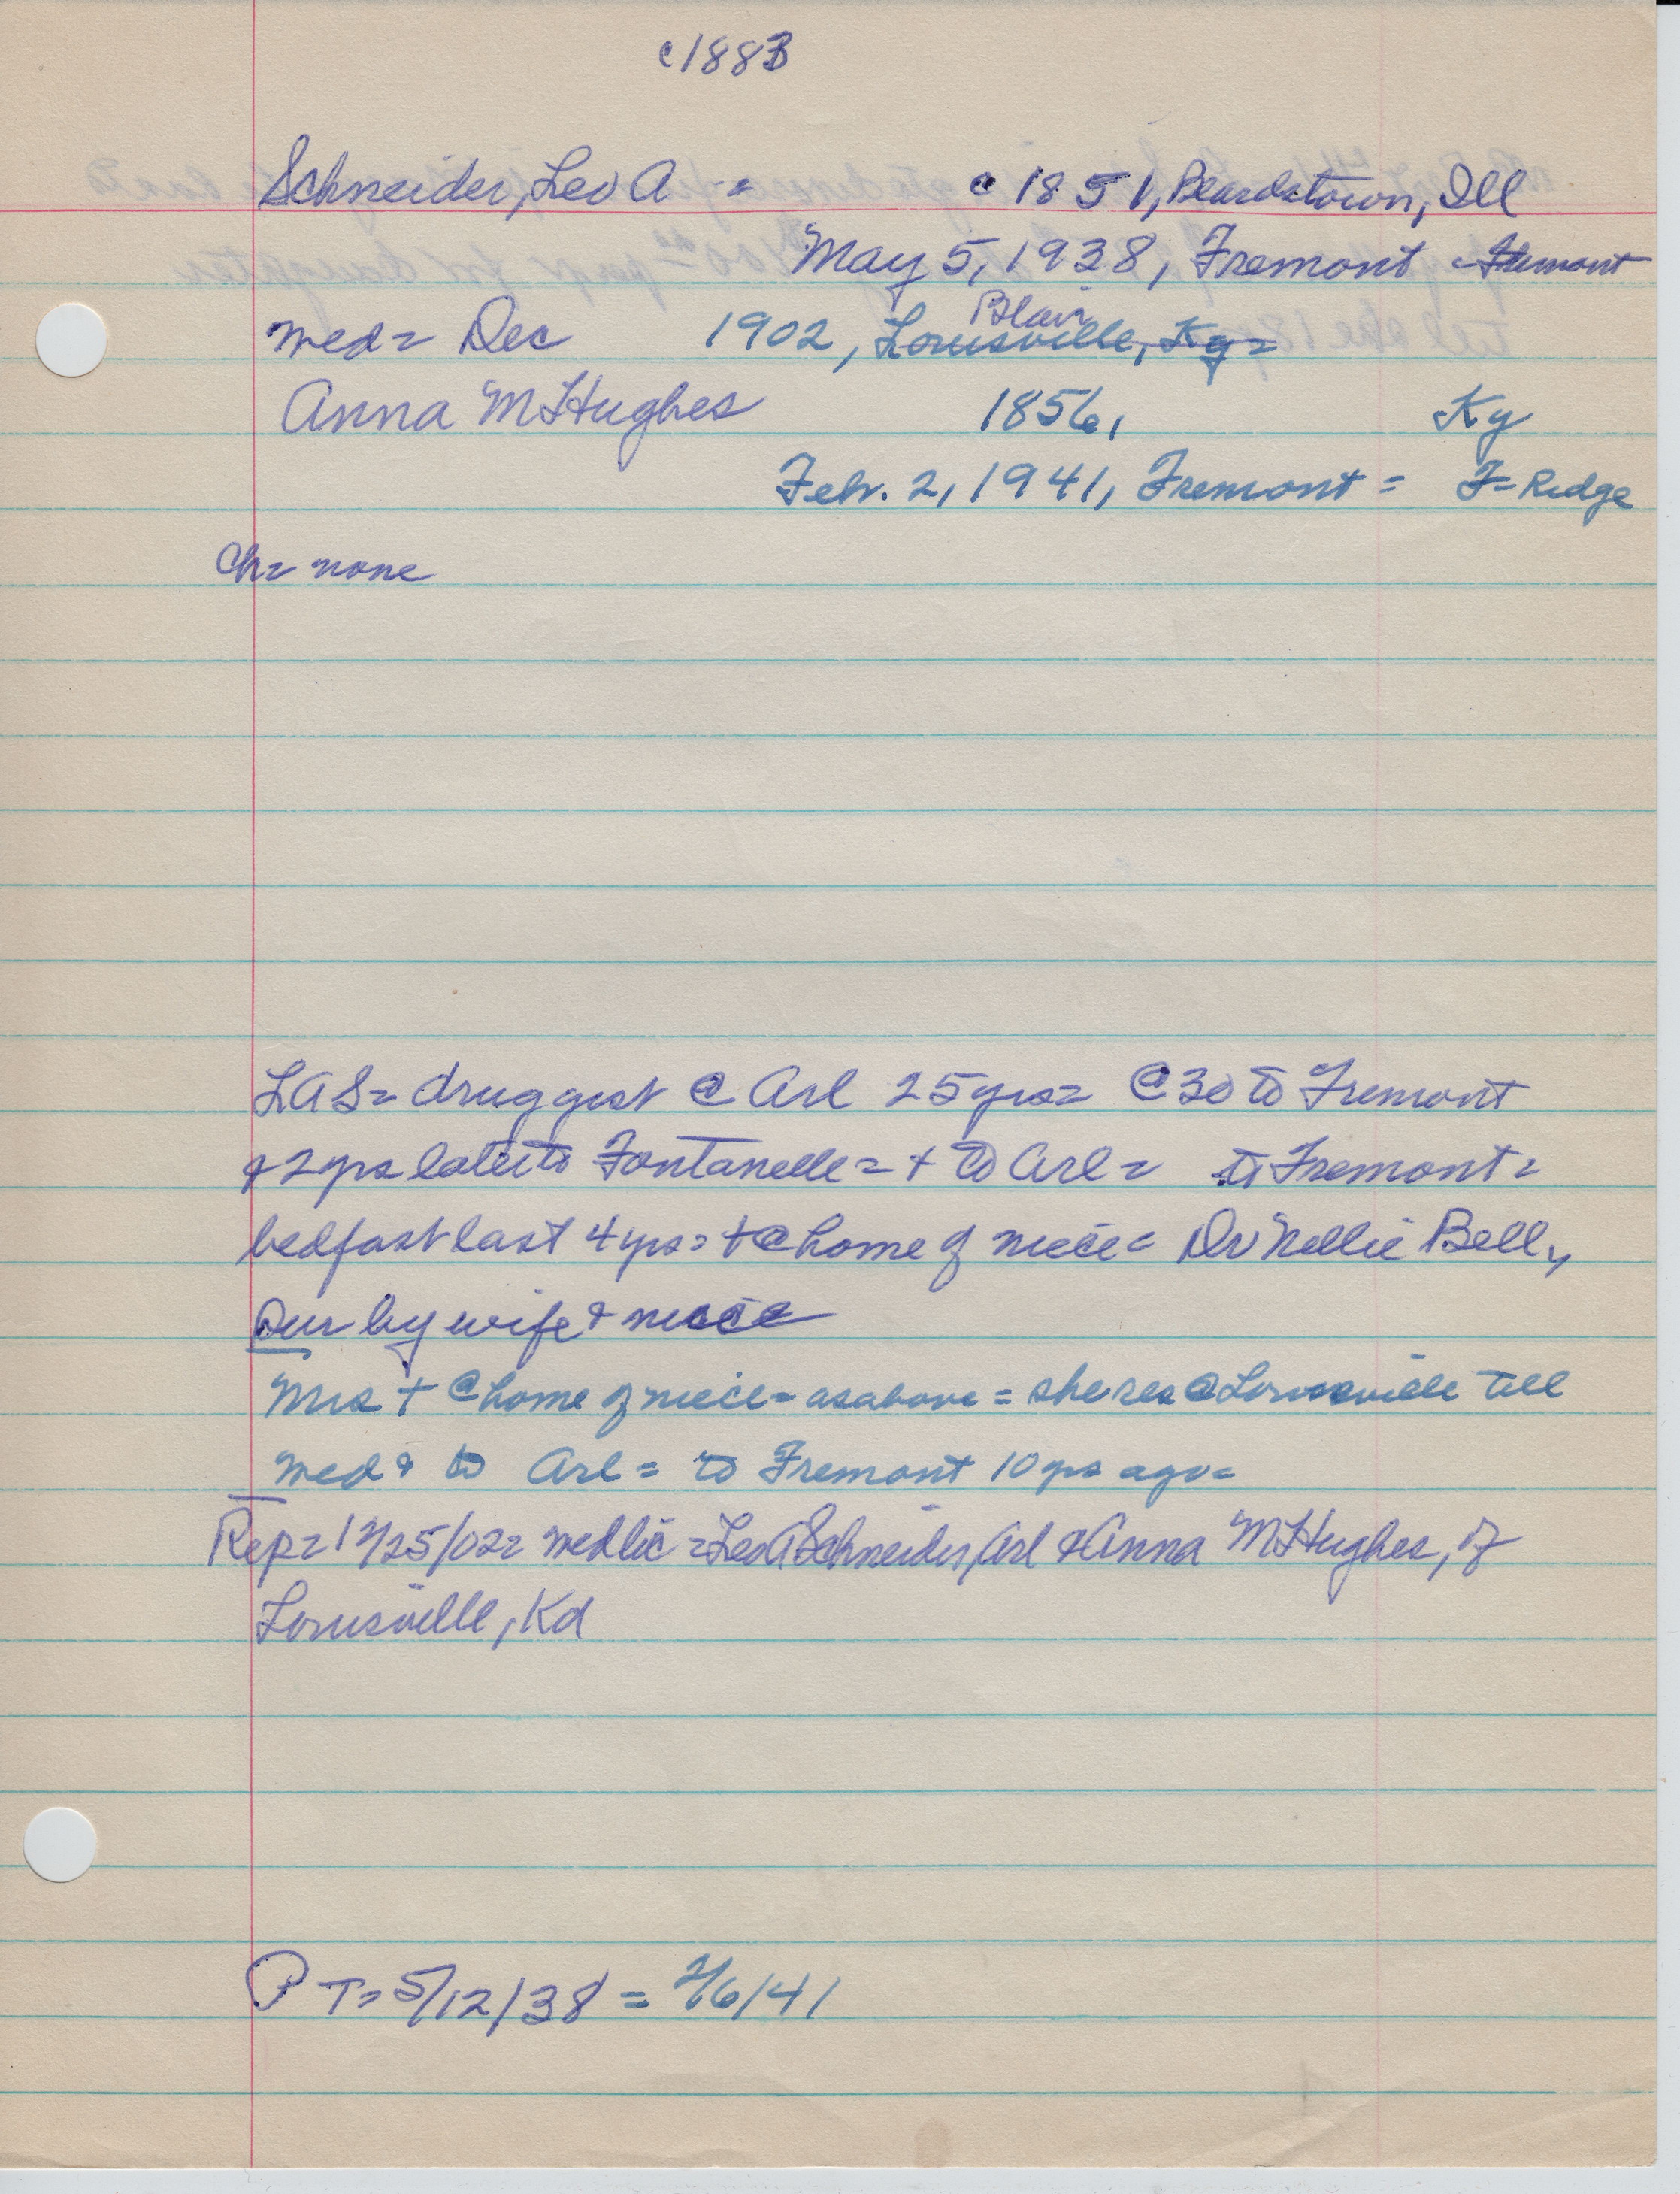 c1883
Schneider, Leo A -= c 1851, Beardstown, Ill
May 5, 1938, Fremont = Fremont
Blair
med= Dec 1902, Louisville, Ky=
Anna M Hughes 1856, Ky
Feb. 2, 1941, Fremont = F= Ridge
Ch= none
LAS= druggist @ Arl 25 yrs= @ 30 to Fremont
& 2 yrs later to Fontanelle= + to Arl= to Fremont=
bedfast last 4 yrs= + @ home of niece= Dr Nellie Bell,
Sur by wife & niece
Mrs + @ home of niece= as above= she res @ Louisville till
med & to Arl= to Fremont 10 yrs ago=
Rep= 12/25/02= med lic= Leo A Schneider, Arl & Anna M Hughes, of
Louisville, Kd
P T= 5/12/38 = 2/6/41